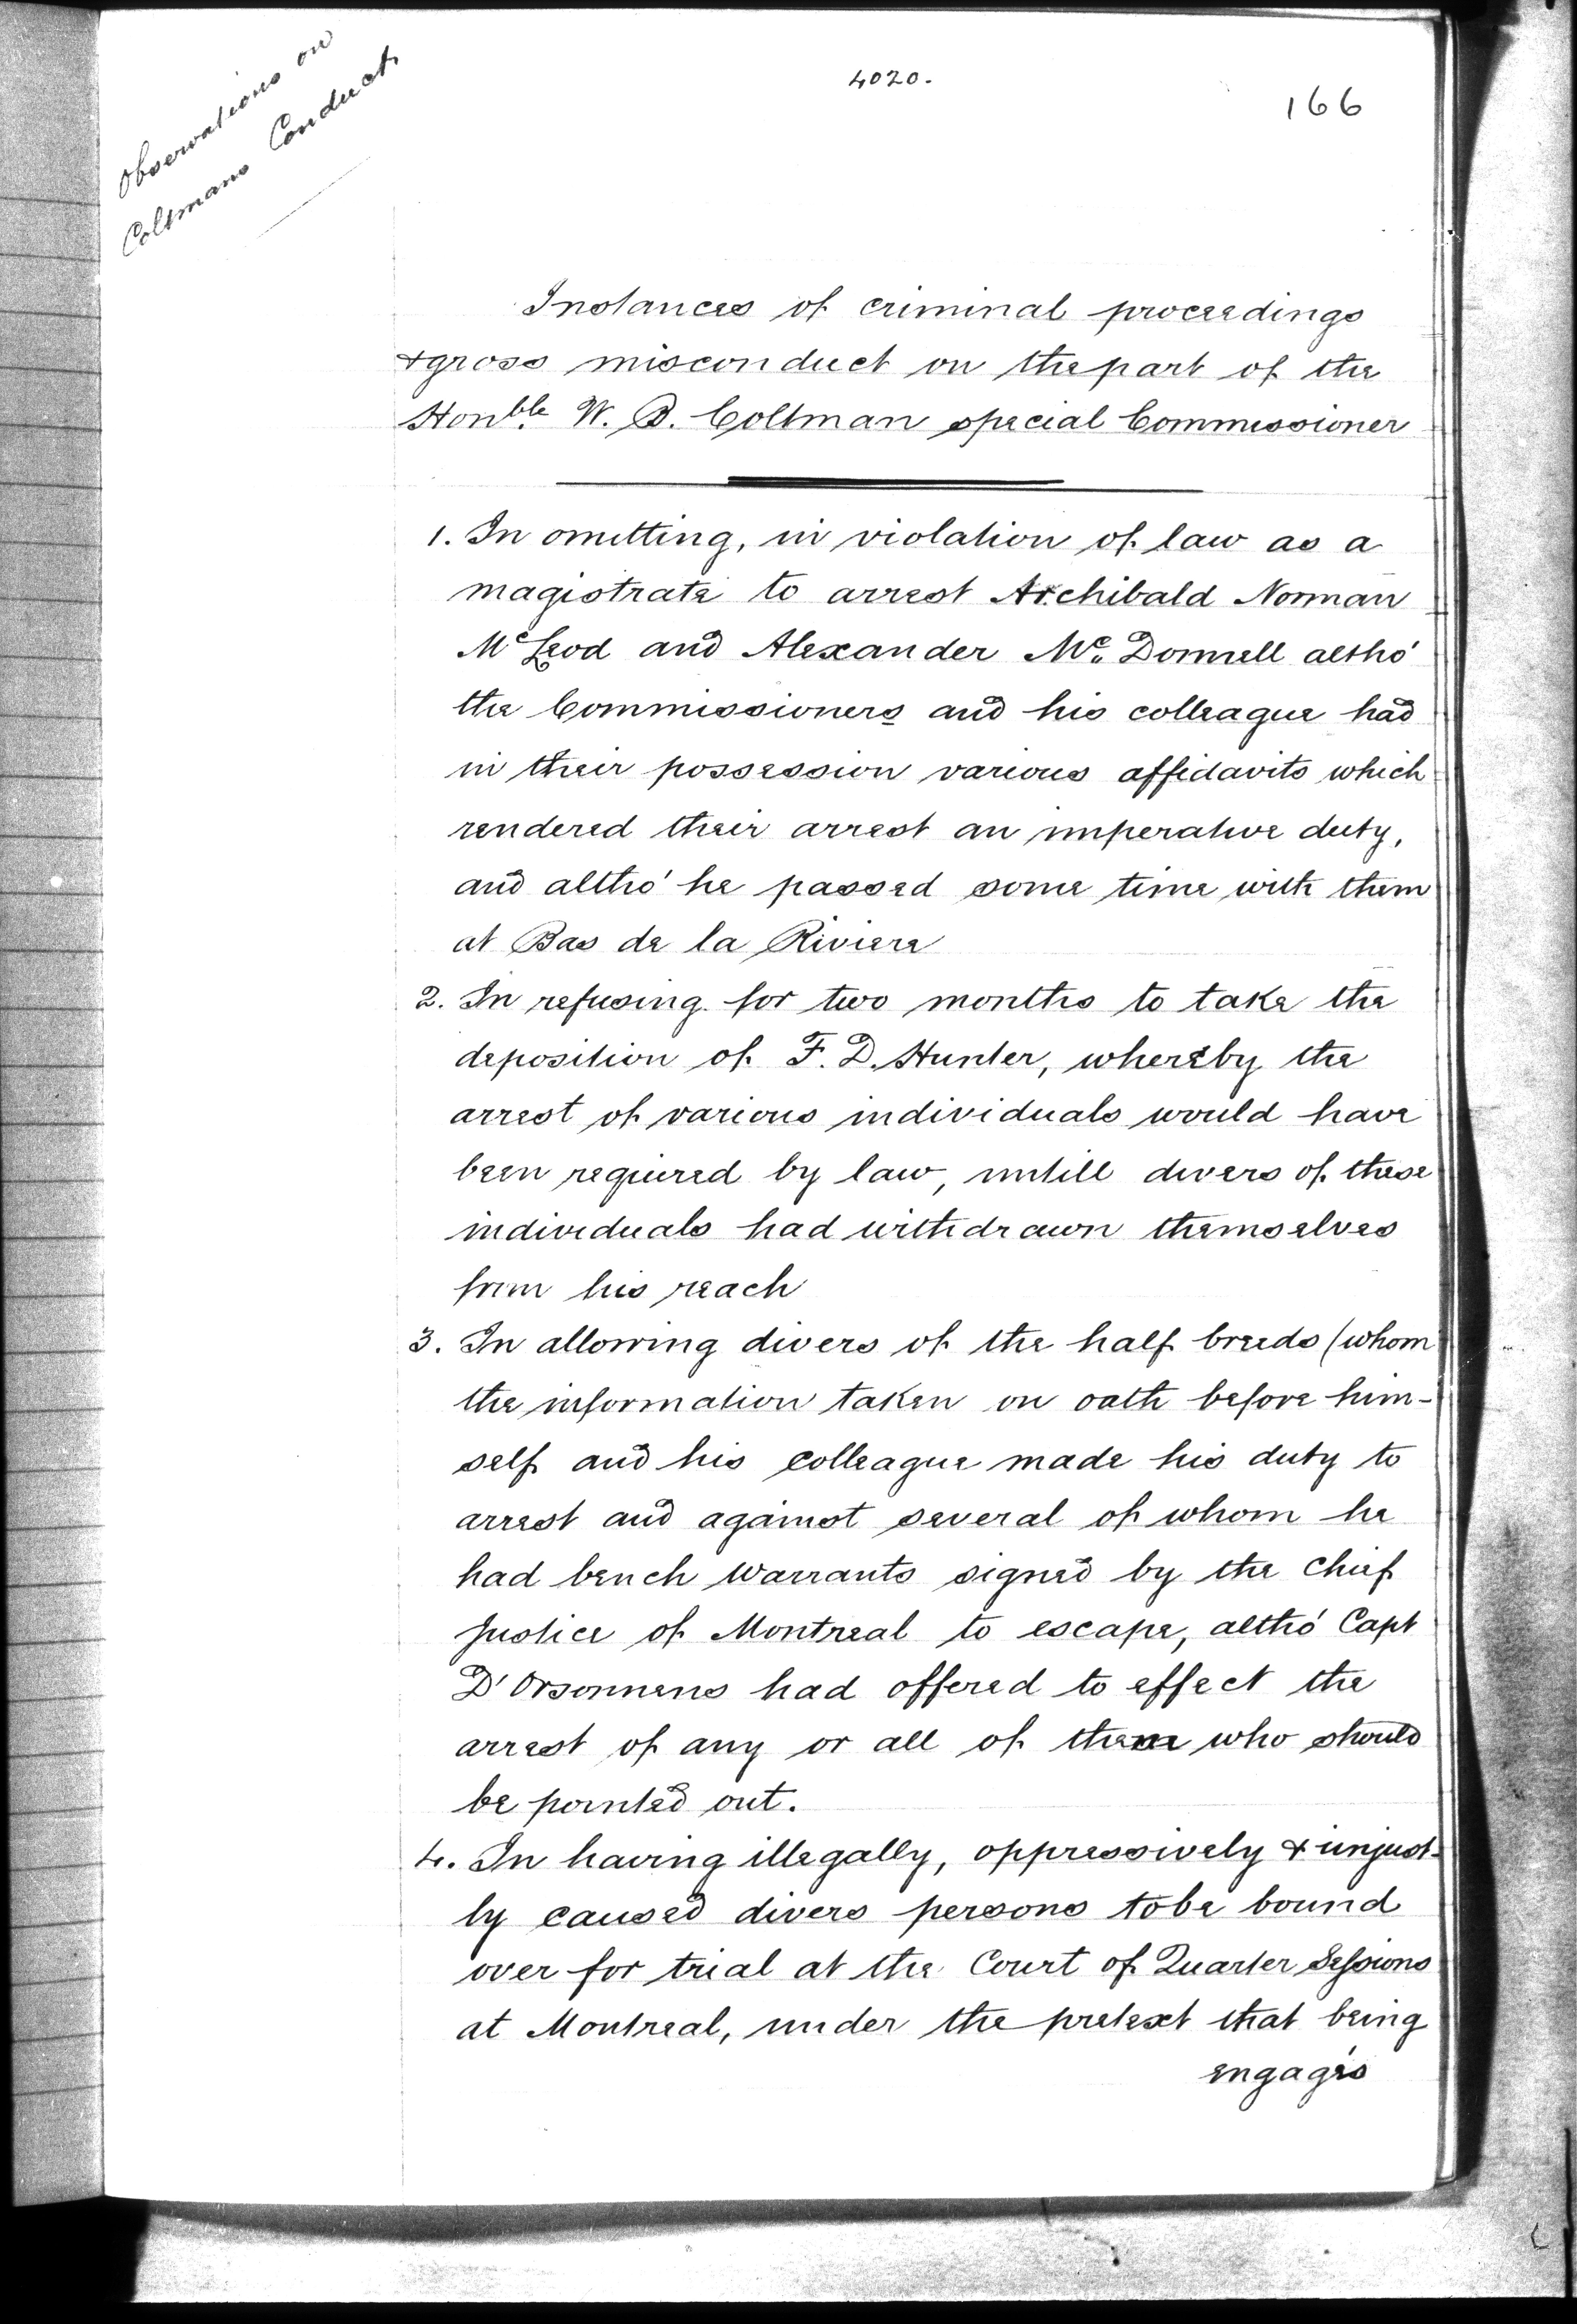 Observations on
Coltmans Conduct
4020.
166
Instances of criminal proceedings
& gross misconduct on the part of the
Honble. W. B. Coltman special Commissioner
1. In omitting, in violation of law as a
magistrate to arrest Archibald Norman
McLeod and Alexander Mc. Donnell altho'
the Commissioners and his colleague had
in their possession various affidavits which
rendered their arrest an imperative duty,
and altho' he passed some time with them
at Bas de la Riviere
2. In refusing for two months to take the
deposition of F. D. Hunter, whereby the
arrest of various individuals would have
been required by law, untill divers of these
individuals had withdrawn themselves
from his reach
3. In allowing divers of the half breeds (whom
the information taken on oath before him-
self and his colleague made his duty to
arrest and against several of whom he
had bench warrants signed by the Chief
Justice of Montreal to escape, altho' Capt
D'Orsonnens had offered to effect the
arrest of any or all of them who should
be pointed out.
4. In having illegally, oppressively & unjust-
ly caused divers persons to be bound
over for trial at the Court of Quarter Sessions
at Montreal, under the pretext that being
engagés